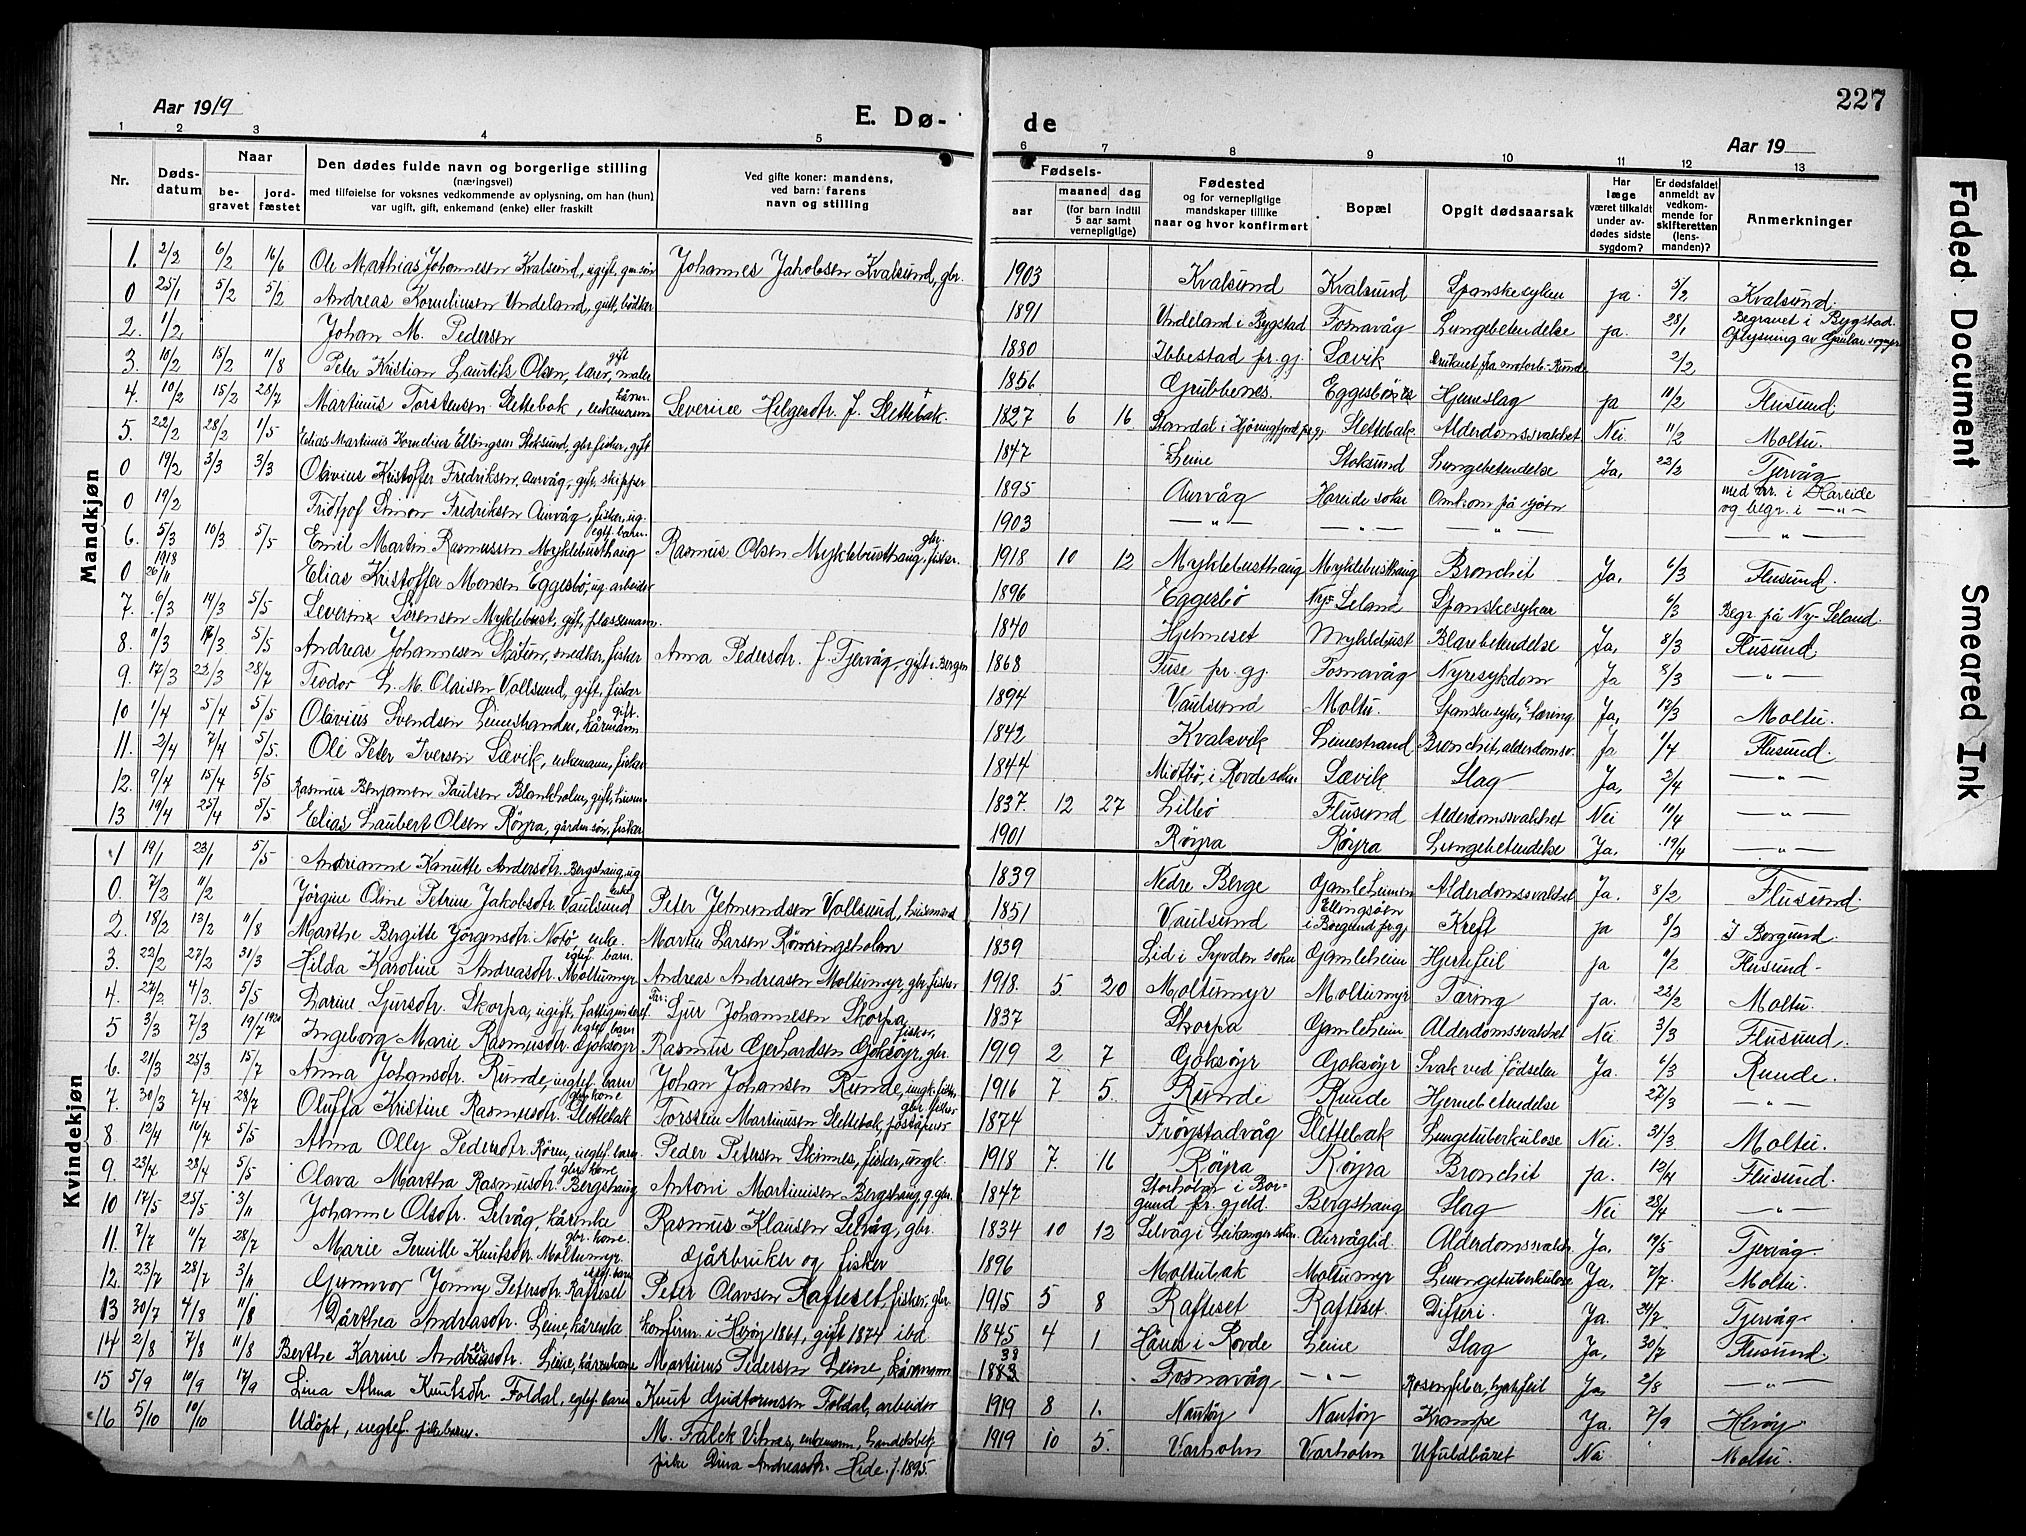 227
Aar 1919
E. Dø-
de
Aar 19
1 2 3 4 5 6 7 8 9 10 11 12 13
Nr.
Døds-
datum
Naar
be-
gravet
jord-
fæstet
Den dødes fulde navn og borgerlige stilling
(næringsvei)
med tilføielse for voksnes vedkommende av oplysning, om han (hun)
var ugift, gift, enkemand (enke) eller fraskilt
Ved gifte koner: mandens,
ved barn: farens
navn og stilling
Fødsels-
aar
maaned
dag
(for barn indtil
5 aar samt
vernepligtige)
Fødested
og for vernepligtige
mandskaper tillike
naar og hvor konfirmert
Bopæl
Opgit dødsaarsak
Har
læge
været tilkaldt
under av-
dødes sidste
sygdom?
Er dødsfaldet
anmeldt av
vedkom-
mende for
skifteretten
(lens-
manden)?
Anmerkninger
Mandkjøn
1. 2/2 6/2 16/6 Ole Mathias Johannesen Kvalsund, ugift, Johannes Jakobsen Kvalsund, gbr. 1903 Kvalsund Kvalsund Spanskesyken ja. 5/2 Kvalsund.
0 25/1 5/2 5/2 Andreas Korneliusen Undeland, gift, bödker 1891 Undeland i Bygstad Fosnavåg Lungebetendelse ja. 28/1 Begravet i Bygstad.
2. 1/2 Johan M. Pedersen 1880 Ibbestad pr.gj. Sævik 2/2
3. 10/2 15/2 11/8 Peter Kristian Lauritis Olsen, lærer, maler gift 1856 Grubbenes. Eggesbönes Hjerneslag ja 11/2 Flusund.
4. 10/2 15/2 28/7 Martinus Torstensen Slettebak, enkemann kårm. Severine Helgesdtr. f. Slettebak. 1827 6 16 Standal i Hjöringfjord pr.gj. Slettebak Alderdomssvakhet Nei 11/2 Moltu.
5. 22/2 28/2 1/5 Elias Martinus Kornelius Ellingsen Stoksund, gbr. fisker, gift 1847 Leine Stoksund Lungebetendelse Ja, 22/2 Tjervåg
0 19/2 3/3 3/3 Olavius Kristoffer Fredriksen Aurvåg, gift, skipper 1895 Aurvåg Hareide sokn Omkom på sjöen med arr. i Hareide
0 19/2 Fridtjof Simon Fredriksen Aurvåg, fisker, ug. 1903 — „ — — „ — — „ — og begr. i — „ —
6. 5/3 10/3 5/5 Emil Martin Rasmussen Myklebusthaug egtef. barn Rasmus Olsen Myklebusthaug, gbr. fisker. 1918 10 12 Myklebusthaug Myklebusthaug Bronchit Ja, 6/3 Flusund.
0 1918 26/11 Elias Kristoffer Monsen Eggesbö, ug. arbeider 1896 Eggesbö Ny-Seland Spanskesyken 6/3 Begr. på Ny-Seland.
7. 6/3 14/3 5/5 Severin Sörensen Myklebust, gift, plassemann. 1840 Hjelmeset Myklebust Blærebetendelse Ja, 8/3 Flusund.
8. 11/3 17/3 5/5 Andreas Johannesen Slåtun, snedker, fisker Anna Pedersdtr. f. Tjervåg, gift i Bergen 1868 Fuse pr. gj. Fosnavåg Nyresykdom Ja 8/3 — „ —
9. 17/3 22/3 28/7 Teodor L. M. Olaisen Vollsund, gift, fisker 1894 Vaulsund Moltu. Spanskesyke, tæring Ja, 17/3 Moltu.
10 1/4 5/4 5/5 Olavius Svendsen Leinestranden, kårmann gift. 1842 Kvalsvik Leinestrand Bronchit, alderdomsv. Ja 1/4 Flusund.
11. 2/4 7/4 5/5. Ole Peter Iversen Sævik, enkemann, fisker 1844 Miötbö, i Rovde sokn Sævik Slag Ja, 3/4 — „ —
12. 9/4 15/4 5/5 Rasmus Benjamin Paulsen Blankholm, gift, husm. 1837. 12 27 Lillebö Flusund Alderdomssvakhet Nei 10/4 — „ —
13 19/4 25/4 5/5 Elias Laubert Olsen Röyra, gårdm. sön, fisker 1901 Röyra Röyra Lungebetendelse Ja. 19/4 — „ —
Kvindekjøn
1 19/1 23/1 5/5 Andrianne Kanutte Andersdtr. Bergshaug, ug 1839 Nedre Berge Gamleheimen Alderdomssvakhet Ja. 8/2 Flusund.
0. 7/2 11/2 Jörgine Oline Petrine Jakobsdtr. Vaulsund enke Peter Jetmundsen Vollsund, husmand 1851 Vaulsund Ellingsöen i Borgund pr.gj. Kreft ja 8/2 I Borgund.
2. 18/2 13/2 11/8 Marthe Bergitte Jörgensdtr. Notö, enke. Martin Larsen Rönningsholm 1839 Lid i Syvden sokn Gamleheim Hjertefeil ja 11/2 Flusund -
3. 22/2 27/2 31/3 Hilda Karoline Andreasdtr. Moltumyr egtef. barn. Andreas Andreasen Moltumyr, gbr. fisker 1918. 5 20 Moltumyr Moltumyr Tæring ja. 22/2 Moltu.
4. 27/2 4/3. 5/5 Karine Sjursdtr. Skorpa, ugift, fattigunderst. Far: Sjur Johannesen Skorpa 1837 Skorpa Gamleheim Alderdomssvakhet Nei 3/3 Flusund.
5 3/3 7/3 19/7 1920 Ingeborg Marie Rasmusdtr. Goksöyr egtef. barn Rasmus Gerhardsen Goksöyr, gbr. fisker, 1919 2 7 Goksöyr Goksöyr Svak ved födselen Ja. 6/3 Runde.
6. 21/3 25/3 15/7 Anna Johansdtr. Runde, uegtef. barn Johan Johansen Runde, ungk. fisker 1916 7 5. Runde Runde Hjernebetendelse 27/3 — „ —
7. 30/3 7/4 28/7 Oluffa Kristine Rasmusdtr. Slettebak gbr. kone Torstein Martinusen Slettebak, poståpner gbr. fisker 1874 Fröystadvåg Slettebak Lungetuberkulose Nei. 31/3 Moltu.
8 12/4 10/4 5/5 Alma Olly Pedersdtr. Röyra, uegtef. barn Peder Petersen Skinnes, fisker, ungk. 1918 7. 16 Röyra Röyra Bronchit ja. 12/4 Flusund.
9. 23/4 28/4 5/5 Olava Martha Rasmusdtr. Bergshaug gbr. kone Antoni Martinusen Bergshaug, g. gbr. 1847 Storholm i Borgund pr. gjeld. Bergshaug Slag Nei 28/4 — „ —
10 17/5 25/5 3/11 Johanne Olsdtr. Selvåg, kårenke Rasmus Klausen Selvåg, gbr. 1834 10 12 Selvåg i Leikanger sokn. Aurvåglid. Alderdomssvakh. Ja, 19/5 Tjervåg
11. 7/7 11/7 28/7 Marie Pernille Knutsdtr. Moltumyr. gbr. kone Gårbruker og fisker 1896 Moltubak Moltumyr Lungetuberkulose Ja, 7/7. Moltu.
12. 23/7 28/7 3/11 Gunnvor Jonny Petersdtr. Rafteset egtef. barn Peter Olavsen Rafteset, fisker, gbr. 1915 5 8 Rafteset Rafteset. Difteri. Ja. 24/7 Tjervåg.
13 30/7 4/8 11/8 Dårthea Andreasdtr. Leine, kårenke Konfirm. i Heröy 1861, gift 1874 ibd 1845 4 1 Hånes i Rovde Leine Slag Ja, 30/7 Flusund.
14 2/8 7/8 11/8 Berthe Karine Andreasdtr. Leine, kårenkone Martinus Pedersen Leine, kårmann 1883 38 Fosnavåg — „ — Rosenfeber, hjertefeil Ja, 2/8 — „ —
15 5/9 10/9 17/9 Lina Alma Knutsdtr. Foldal, egtef. barn Knut Gudtormsen Foldal, arbeider 1919 8 1. Nautöy Nautöy Krampe Ja. 7/9 Heröy
16 5/10 10/10 Udöpt, uegtef. pikebarn. M. Falck Vilnas, enkemann, handelsbetj. 1919 10 5. Varholm Varholm Ufuldbåret Nei Moltu.
pike Dina Andreasdtr. Hide. f. 1895.
Faded Document
Smeared Ink